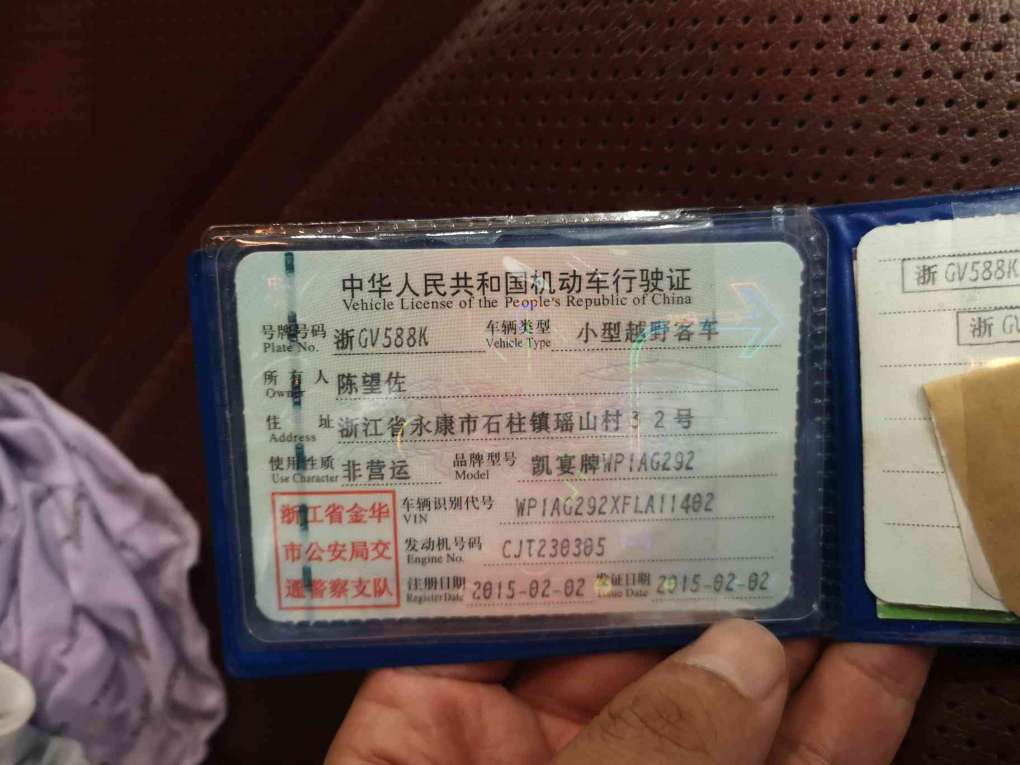 中华人民共和国机动车行驶证
Vehicle License of the People's Republic of China
号牌号码 浙GV588K 车辆类型 小型越野客车
Plate No. Vehicle Type
所有人 陈望佐
Owner
住址 浙江省永康市石柱镇瑶山村32号
Address
使用性质 非营运 品牌型号 凯宴牌WP1AG292
Use Character Model
浙江省金华
市公安局交
通警察支队
车辆识别代号 WP1AG292XFLA11402
VIN
发动机号码 CJT230305
Engine No.
注册日期 2015-02-02 发证日期 2015-02-02
Register Date Issue Date
浙GV588K
浙G